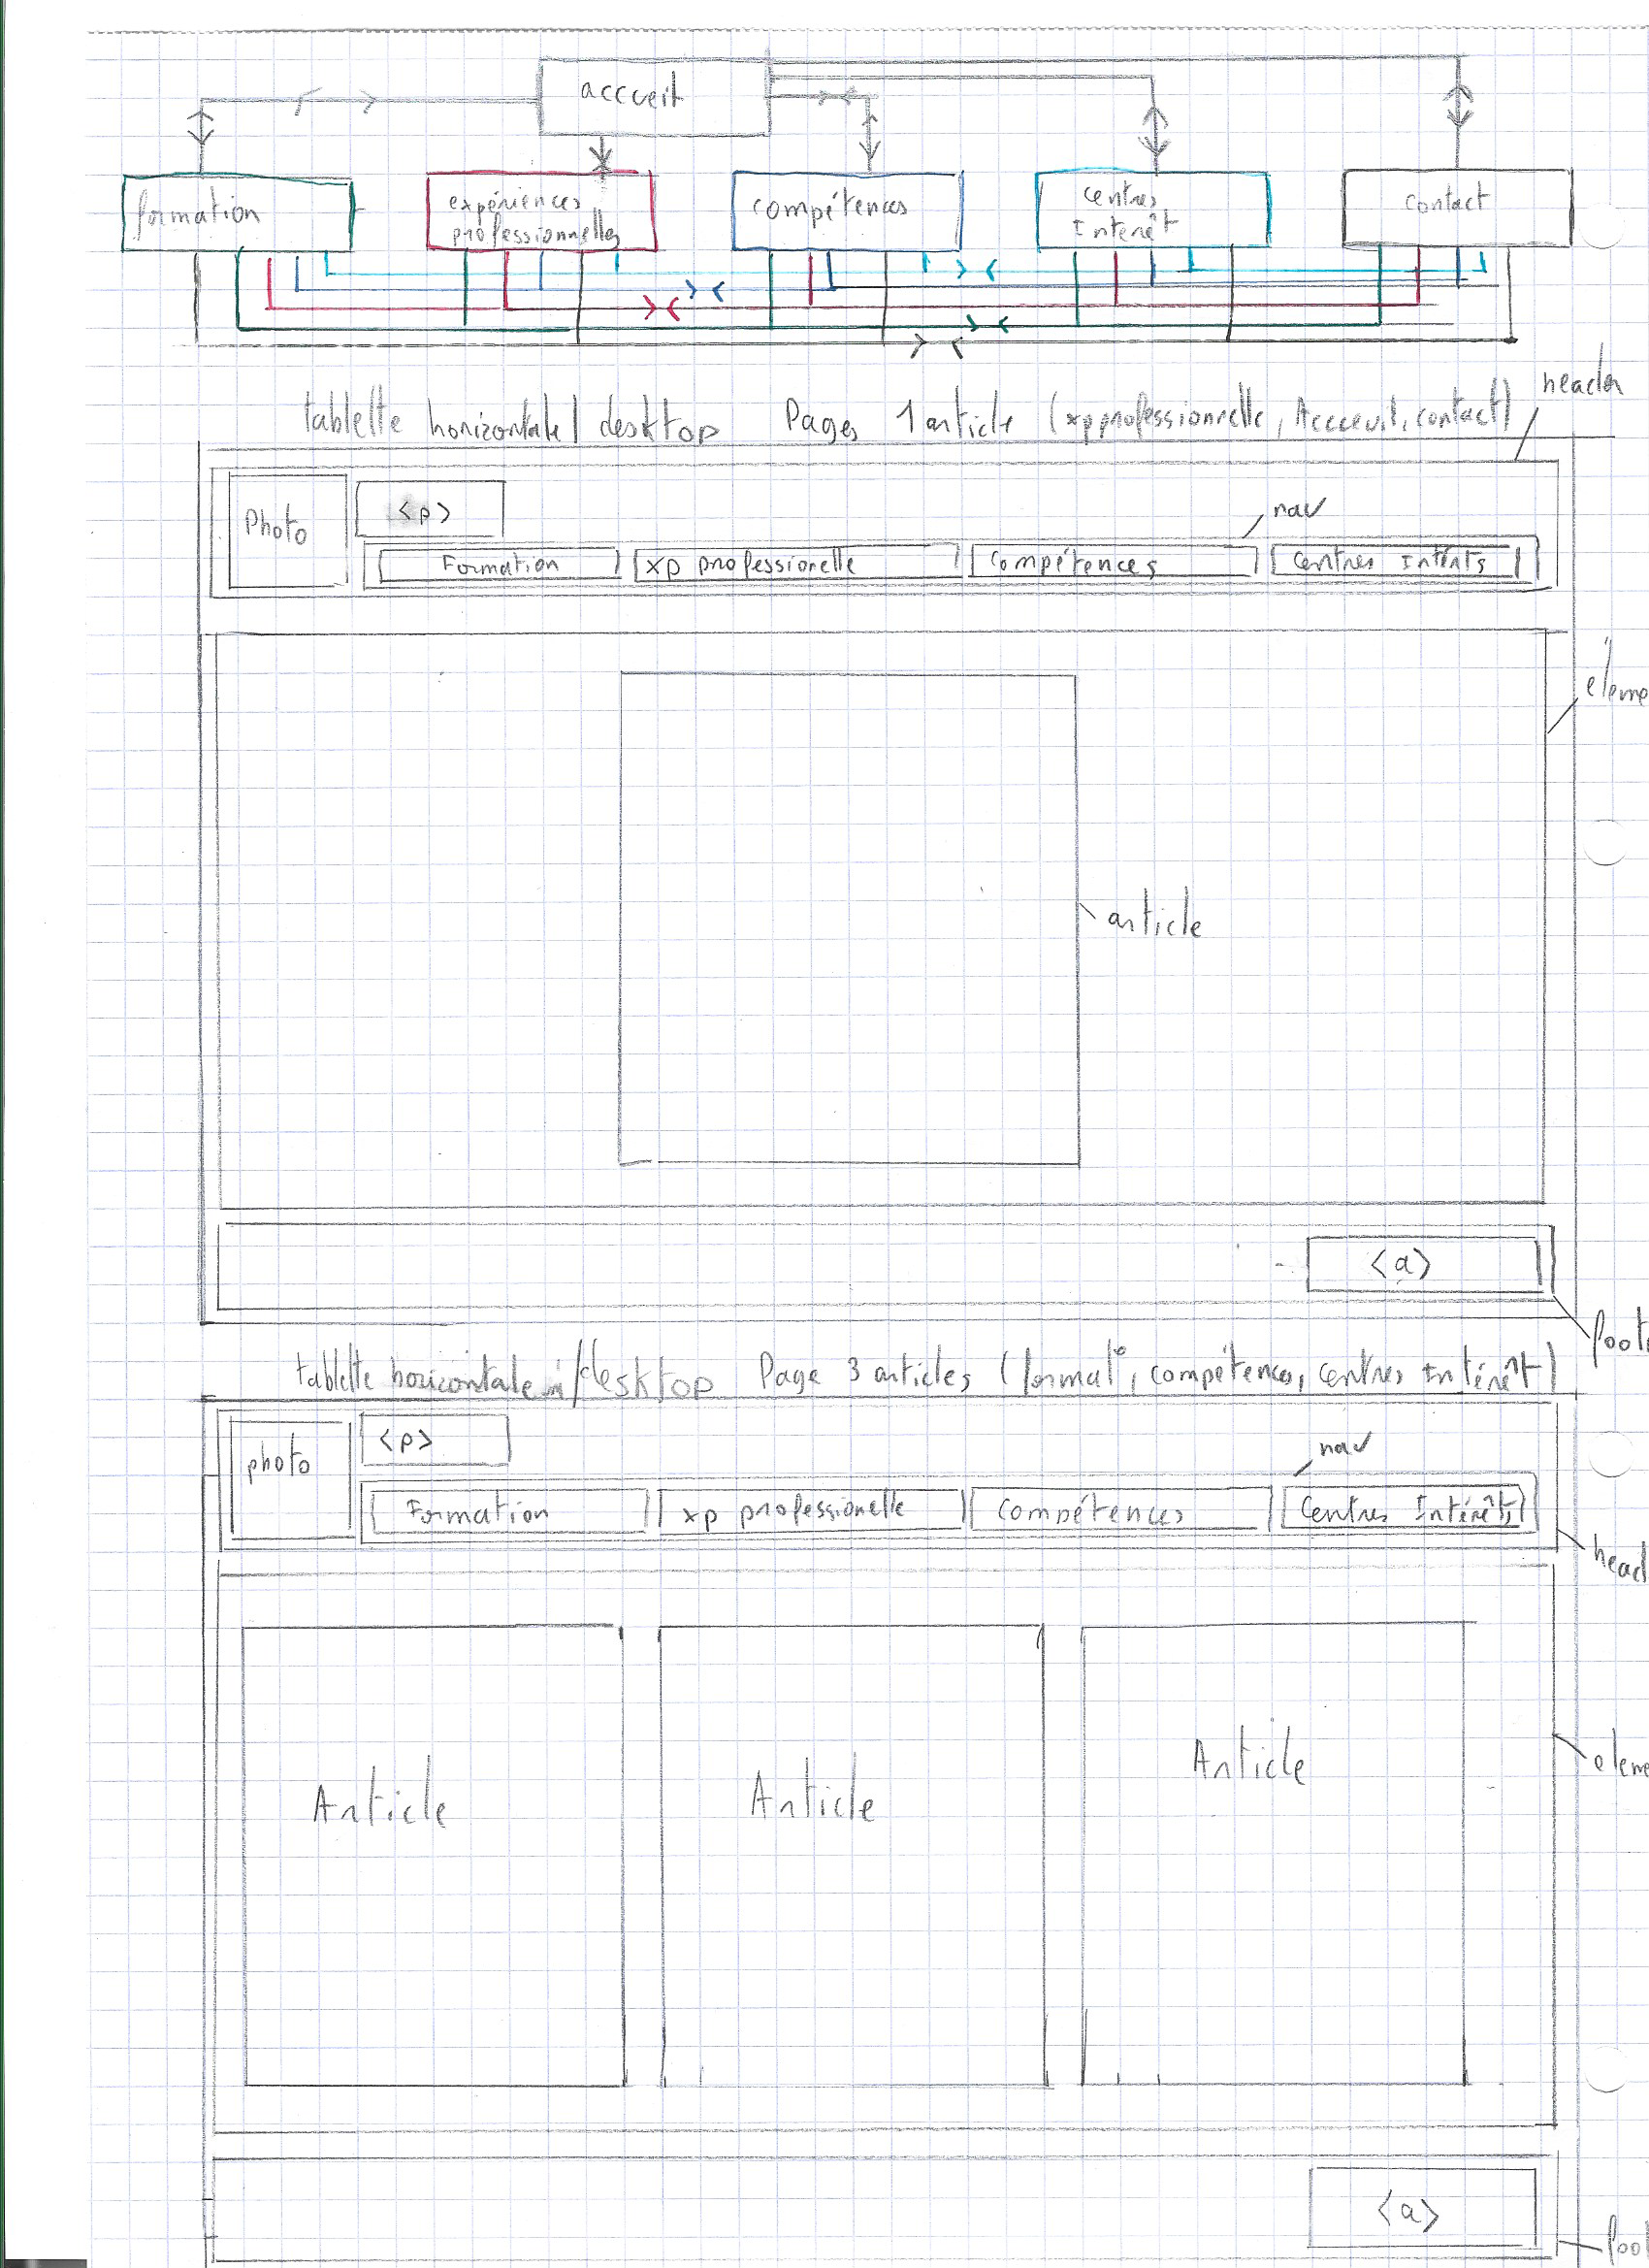 accueil
formation
expériences
professionnelles
compétences
centres
Intérêt
contact
header
tablette horizontale/desktop Pages 1 article (xp professionnelle, Acceuil, contact)
Photo
<p>
nav
Formation
xp professionelle
compétences
centres Intérêts
éleme
article
<a>
foote
tablette horizontale /desktop Page 3 articles (format°, compétences, centres Intérêt)
photo
<p>
nav
Formation
xp professionelle
compétences
centres Intérêts
head
Article
Article
Article
eleme
<a>
foot